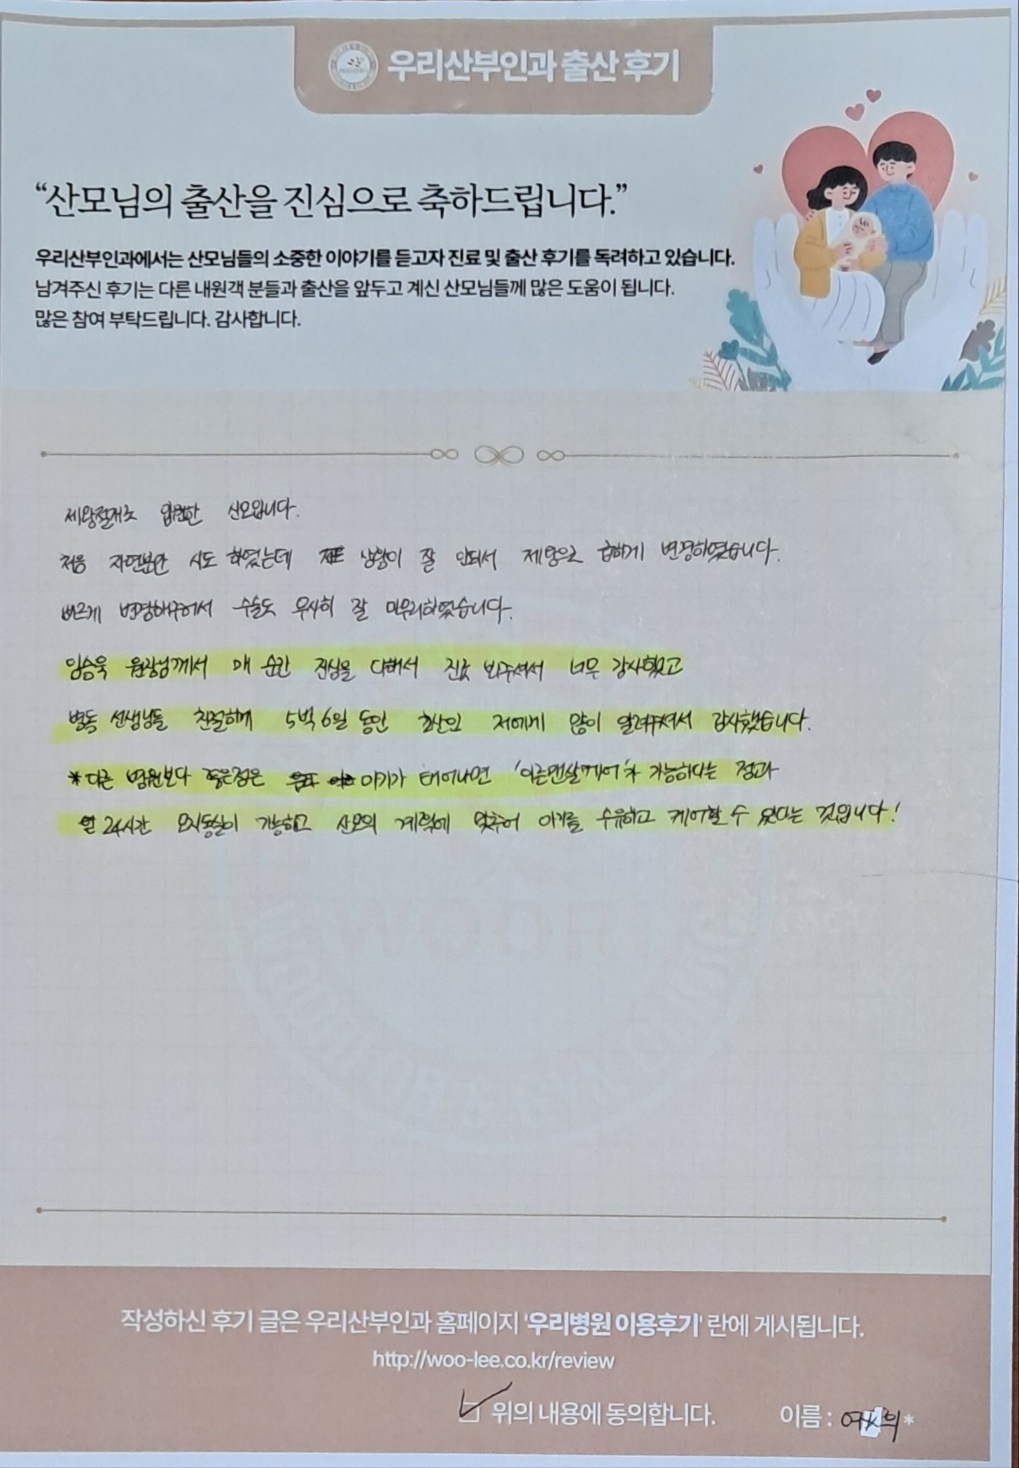 우리산부인과 출산 후기
“산모님의 출산을 진심으로 축하드립니다.”
우리산부인과에서는 산모님들의 소중한 이야기를 듣고자 진료 및 출산 후기를 독려하고 있습니다.
남겨주신 후기는 다른 내원객 분들과 출산을 앞두고 계신 산모님들께 많은 도움이 됩니다.
많은 참여 부탁드립니다. 감사합니다.
제왕절개로 입원한 산모입니다.
처음 자연분만 시도 하였는데 상황이 잘 안돼서 제왕으로 급하게 변경하였습니다.
빠르게 변경해주어서 수술도 무사히 잘 마무리하였습니다.
임승욱 원장님께서 매 순간 진심을 다해서 진료 봐주셔서 너무 감사했고
병동 선생님들 친절하게 5박6일 동안 초산인 저에게 많이 알려주셔서 감사했습니다.
* 다른 병원보다 좋은점은 아기가 태어나면 '이른맨살케어'가 가능하다는 점과
24시간 모자동실이 가능하고 산모의 계획에 맞추어 아기를 수유하고 케어할 수 있다는 것입니다!
작성하신 후기 글은 우리산부인과 홈페이지 '우리병원 이용후기' 란에 게시됩니다.
http://woo-lee.co.kr/review
위의 내용에 동의합니다. 이름 :